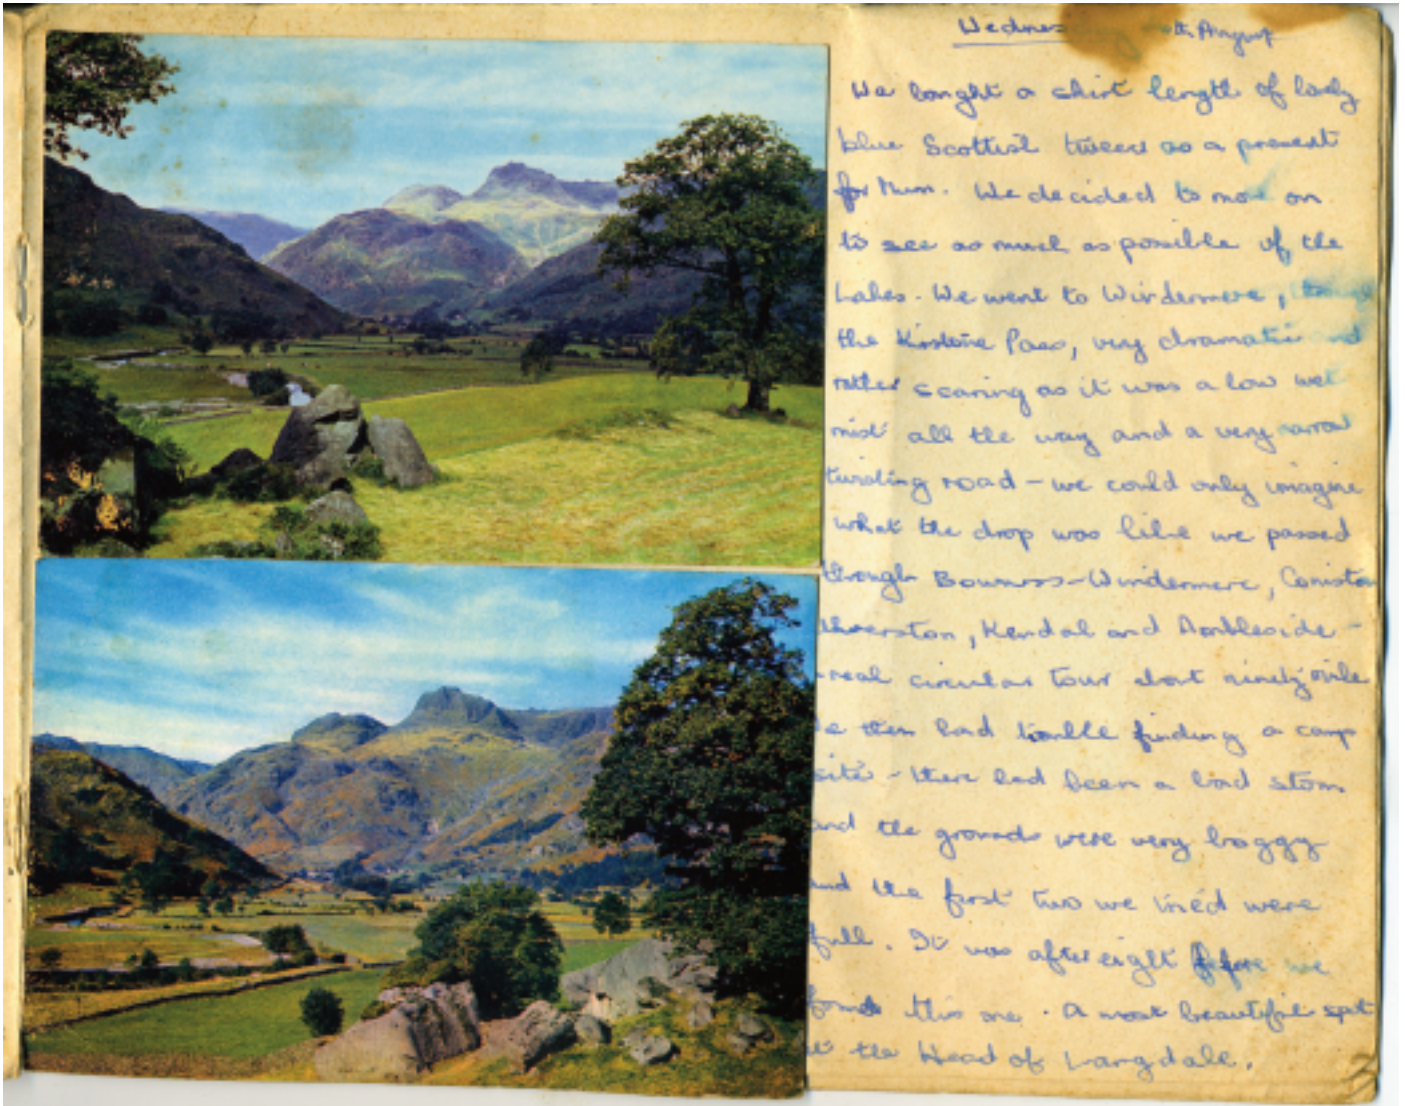 Wednes th August
We bought a skirt length of lovely
blue Scottish tweed as a present
for Mum. We decided to move on
to see as much as possible of the
Lakes. We went to Windermere, through
the Kirkstone Pass, very dramatic and
rather scaring as it was a low wet
mist all the way and a very narrow
twisting road - we could only imagine
what the drop was like we passed
through Bowness-Windermere, Coniston
Ulverston, Kendal and Ambleside -
real circular tour about ninety mile
We then had trouble finding a camp
site - there had been a bad storm
and the grounds were very boggy
and the first two we tried were
full. It was after eight before we
found this one. A most beautiful spot
at the Head of Langdale.
3